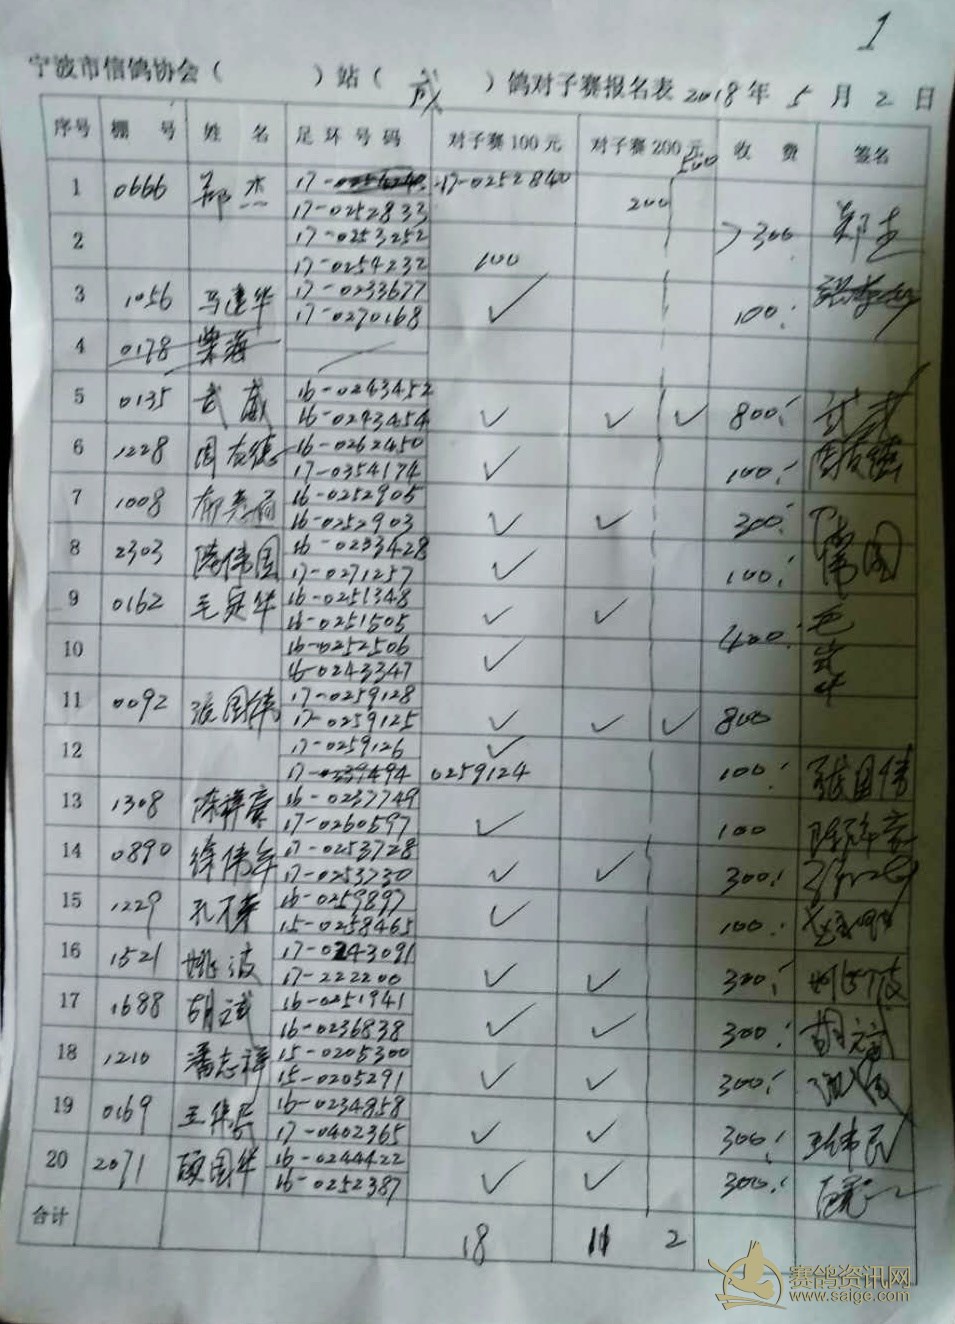 1
宁波市信鸽协会( )站( 成 )鸽对子赛报名表 2018年 5月 2日
序号 棚号 姓名 足环号码 对子赛100元 对子赛200元 500 收费 签名
1 0666 郑杰 17-0252840 200
17-0252833
2 17-0253252 >300
17-0254232 100
3 1056 马建华 17-0233677 ✓ 100
17-0270168
4 0178 柴海
5 0135 武威 16-0243452 800 武威
16-0243454 ✓ ✓ ✓
6 1228 周友德 16-0262450 100 周友德
17-0354174 ✓
7 1008 16-0252905 300
16-0252903 ✓ ✓
8 2303 陈伟国 16-0233428 100 伟国
17-0271257 ✓
9 0162 毛定华 16-0251348 毛
16-0251505 ✓ ✓ 400
10 16-0252506 ✓
16-0243347
11 0092 张国伟 17-0259128
17-0259125 ✓ ✓ ✓ 800
12 17-0259126 ✓
17-0239494 0259124 100 张国伟
13 1308 陈祥豪 16-0237749
17-0260597 ✓ 100 陈祥豪
14 0890 徐伟年 17-0253728
17-0253730 ✓ ✓ 300
15 1229 16-0259897 ✓
15-0258465 100
16 1521 姚波 17-0243091
17-222200 ✓ ✓ 300
17 1688 胡斌 16-0251941
16-0236838 ✓ ✓ 300 胡斌
18 1210 潘志祥 15-0205300
15-0205291 ✓ ✓ 300
19 0169 王伟民 16-0234958
17-0402365 ✓ ✓ 300 王伟民
20 2071 顾国华 16-0244422
16-0252387 ✓ ✓ 300
合计 18 11 2
赛鸽资讯网
www.saige.com